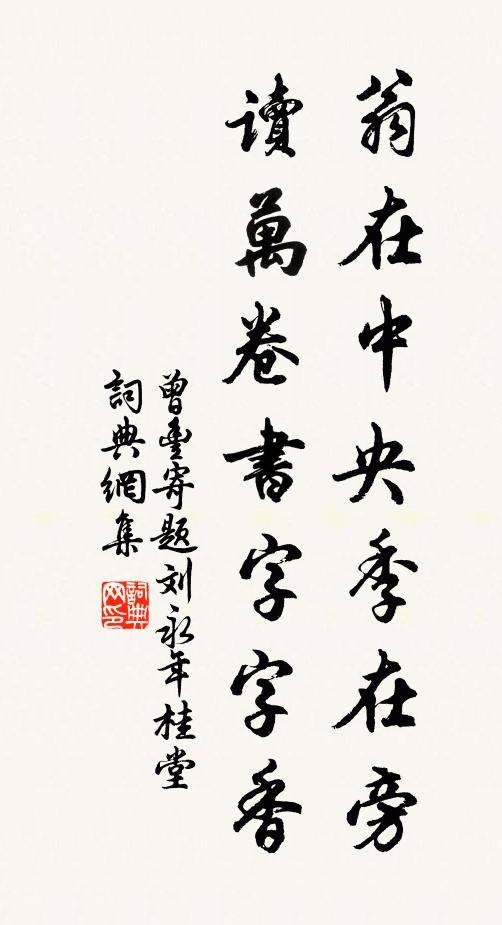 翁在中央季在旁
讀萬卷書字字香
曾豐寄題刘永年桂堂
詞典網集
詞典网印